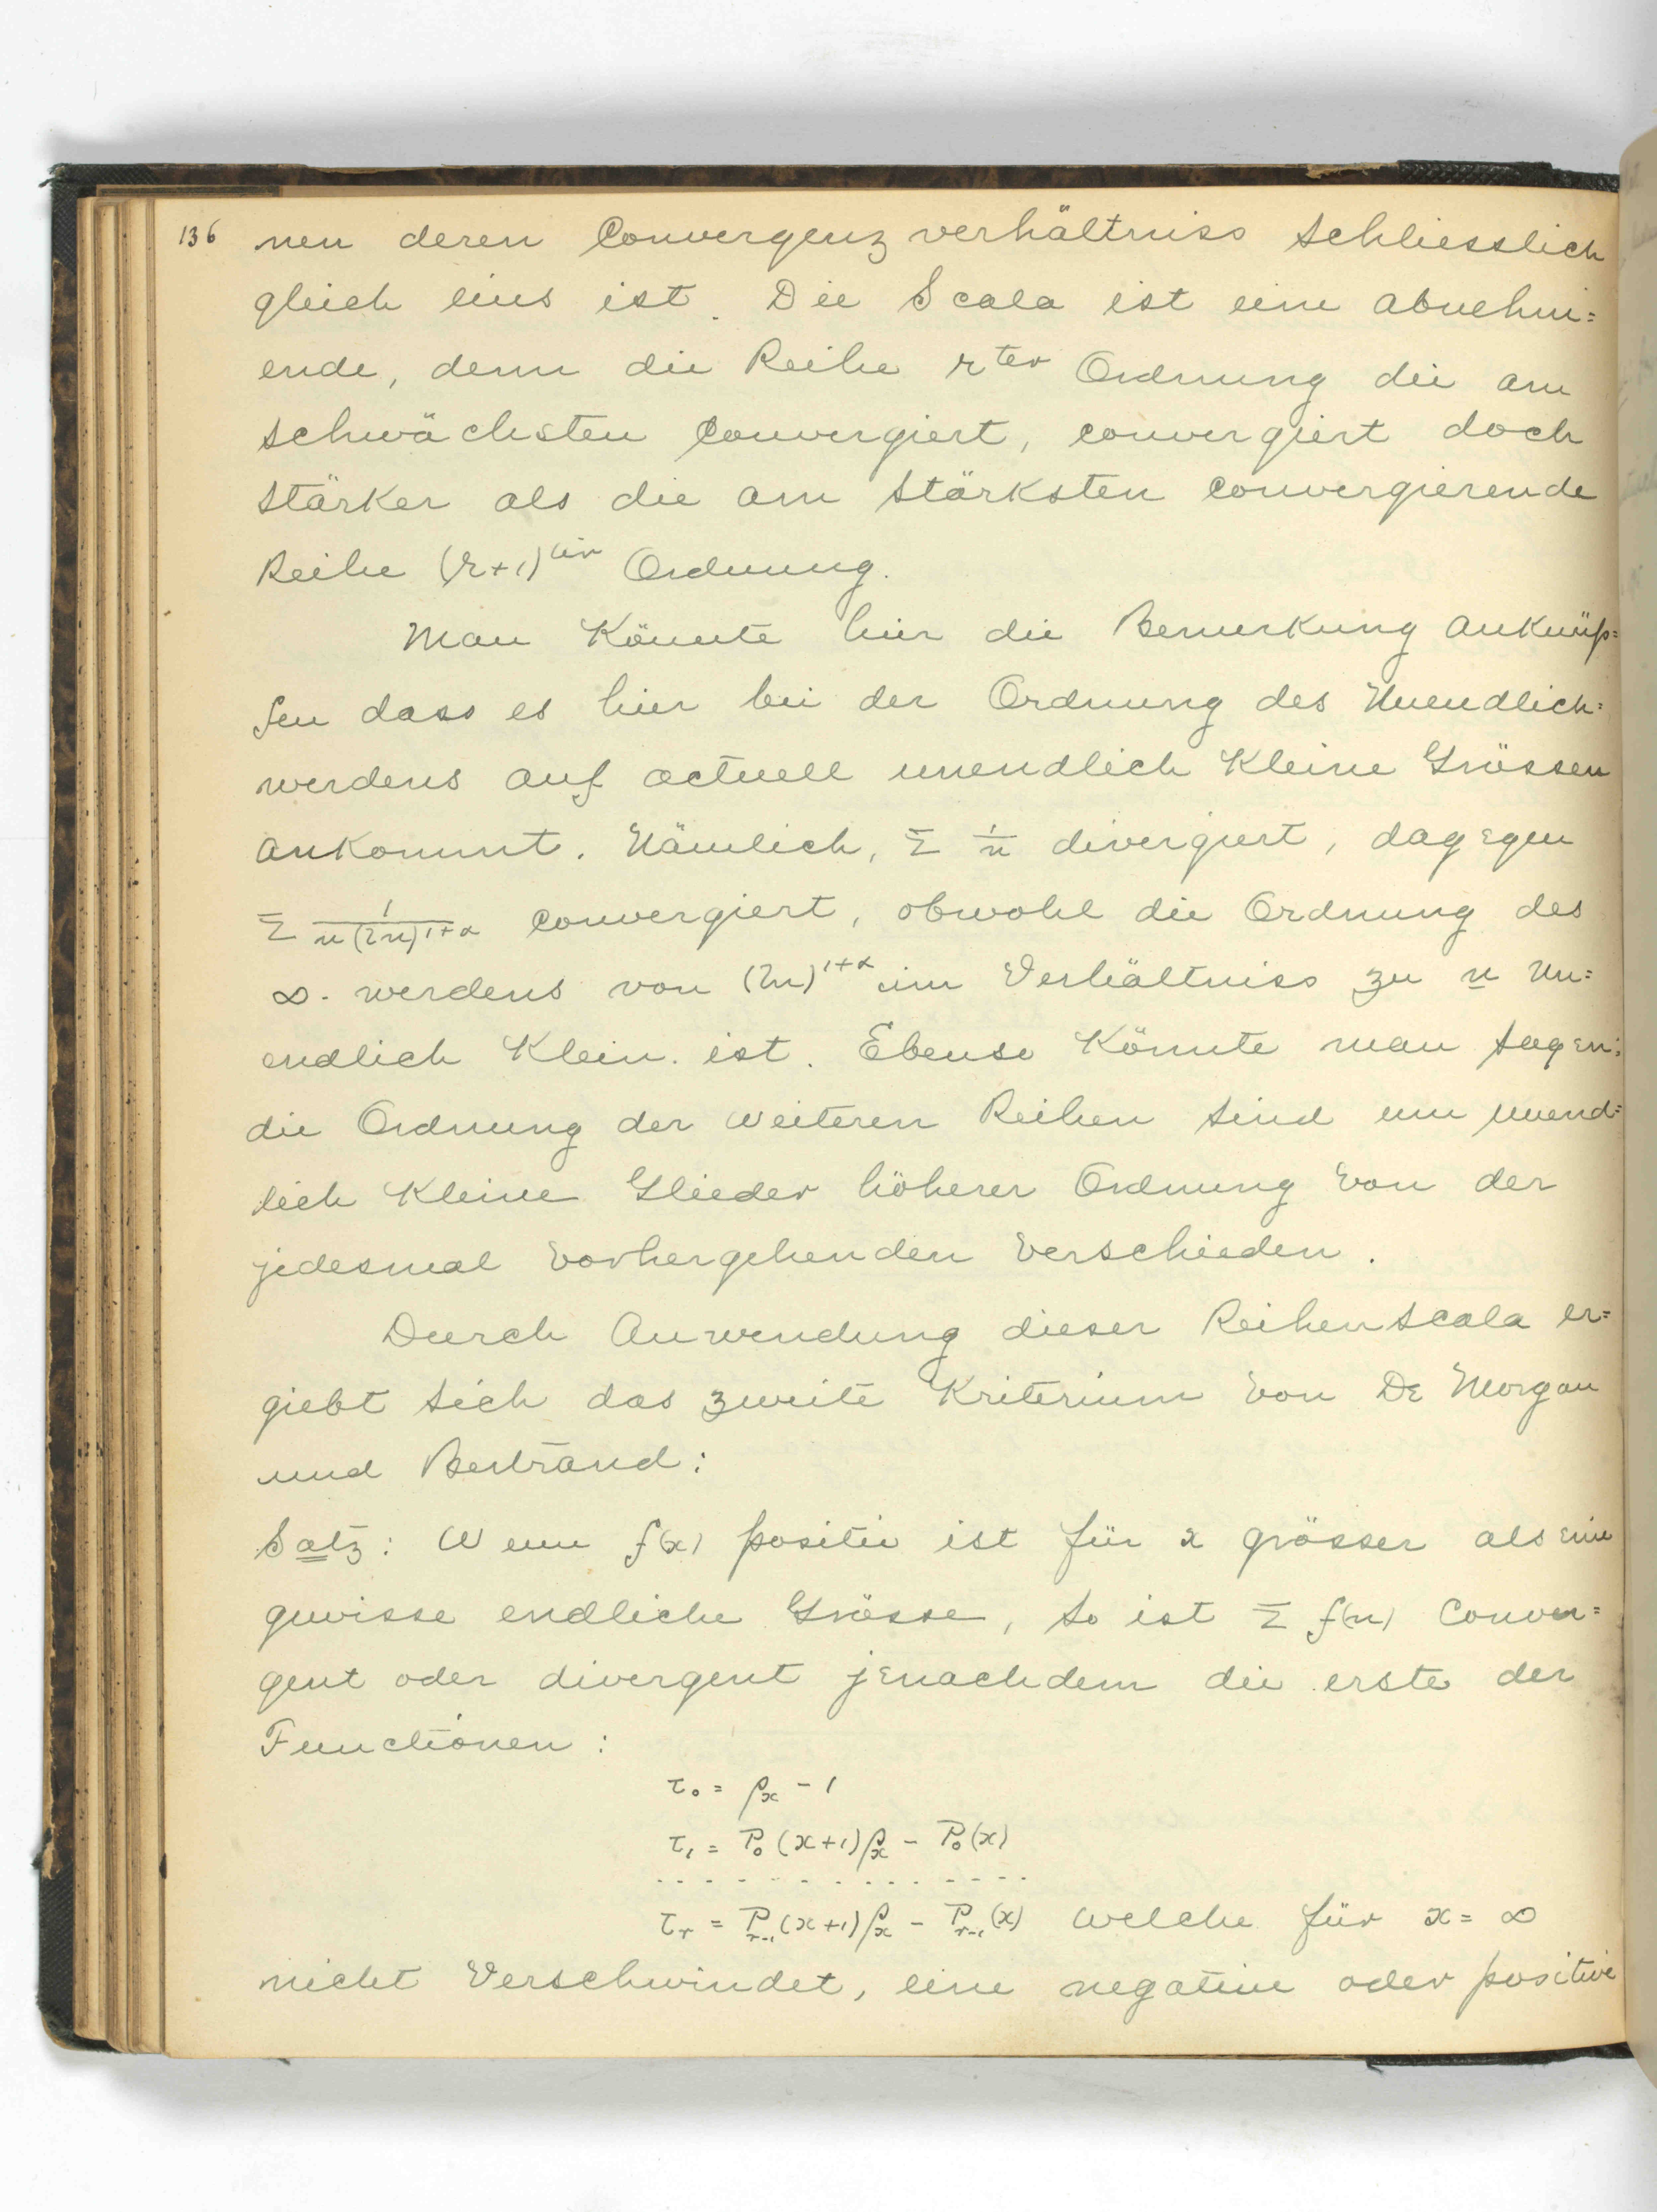 136 nen deren Convergenzverhältniss schliesslich
gleich eins ist. Die Scala ist eine abnehm=
ende, denn die Reihe r^ter Ordnung die am
schwächsten convergiert, convergiert doch
stärker als die am stärksten convergierende
Reihe (r+1)^ter Ordnung.
Man könnte hier die Bemerkung anknüp=
fen dass es hier bei der Ordnung des Unendlich=
werdens auf actuell unendlich kleine Grössen
ankommt. Nämlich, Σ 1/n divergiert, dagegen
Σ 1/(n(ln)^{1+α}) convergiert, obwohl die Ordnung des
∞-werdens von (ln)^{1+α} im Verhältniss zu n un=
endlich klein ist. Ebenso könnte man sagen:
die Ordnung der weiteren Reihen sind um unend=
lich kleine Glieder höherer Ordnung von der
jedesmal vorhergehenden verschieden.
Durch Anwendung dieser Reihenscala er=
giebt sich das zweite Kriterium von De Morgan
und Bertrand:
Satz: Wenn f(x) positiv ist für x grösser als eine
gewisse endliche Grösse, so ist Σ f(n) conver=
gent oder divergent jenachdem die erste der
Functionen:
τ₀ = ρ_x - 1
τ₁ = P₀(x+1)ρ_x - P₀(x)
. . . . . . . . . . . . . . .
τ_r = P_{r-1}(x+1)ρ_x - P_{r-1}(x) welche für x = ∞
nicht verschwindet, eine negative oder positive